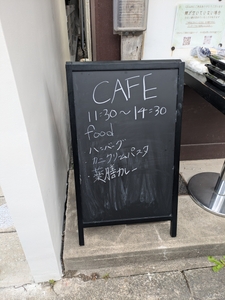 CAFE
11:30〜14:30
food
・ハンバーグ
・カニクリームパスタ
・薬膳カレー